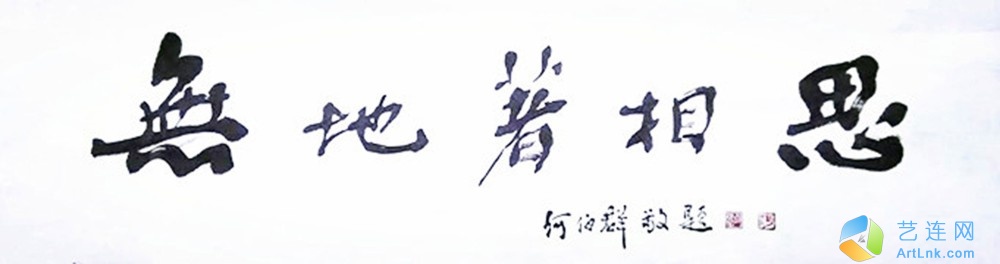 無地著相思
何伯群敬題
艺连网
ArtLnk.com